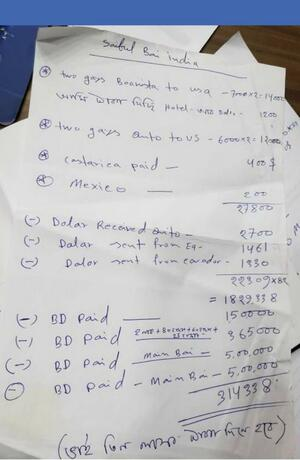 Saibul Bai india
two gays Boavista to usa - 7000x2=14000
Hotel - 1200
two gays quito to US - 6000x2=12000
Costarica paid - 400 $
Mexico — 200
27800
(-) Dolar Receved quito - 2700
(-) Dalar sent from Eq - 1461
(-) Dolor sent from - 1330
22309x82
= 1829338
(-) BD Paid — 150000
(-) BD Paid 365000
(-) BD Paid Main Bai - 5,00,000
(-) BD Paid - Main Bai - 5,00,000
314338